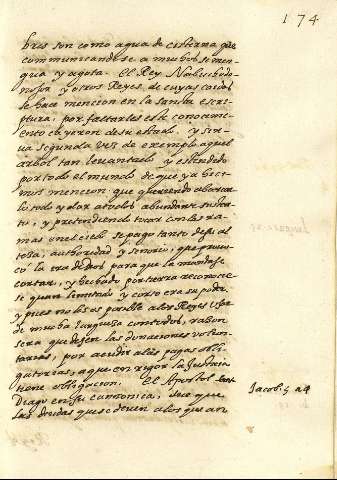 174
bres son como agua de cisterna que
communicandose a muchos se men-
gua y agota. El Rey Nabuchodo-
nosor y otros Reyes, de cuyas caidas
se hace mencion en la santa escri-
ptura, por faltarles este conocimi-
ento cayeron de su estado. y sir-
va segunda vez de exemplo aquel
arbol tan levantado y estendido
por todo el mundo de que ya hici-
mos mencion que queriendo abarcar-
lo todo y dar a todos abundante susten-
to, y pretendiendo tocar con las ra-
mas en el cielo se pago tanto de su al-
teza, authoridad y señorio, que provo-
có la ira de Dios para que la mandase
cortar, y hechado por tierra reconocie-
se quan limitado y corto era su poder
y pues no les es posible a los Reyes usar
de mucha largueza con todos, razon
sera que dejen las donaciones volun-
tarias, por acudir a las pagas obli-
gatorias, a que en rigor la Justicia
tiene obligacion. El Apostol Sant-
Diago en su canonica, dice que
las deudas que se deven a los que an
Jacob. 5 a 4